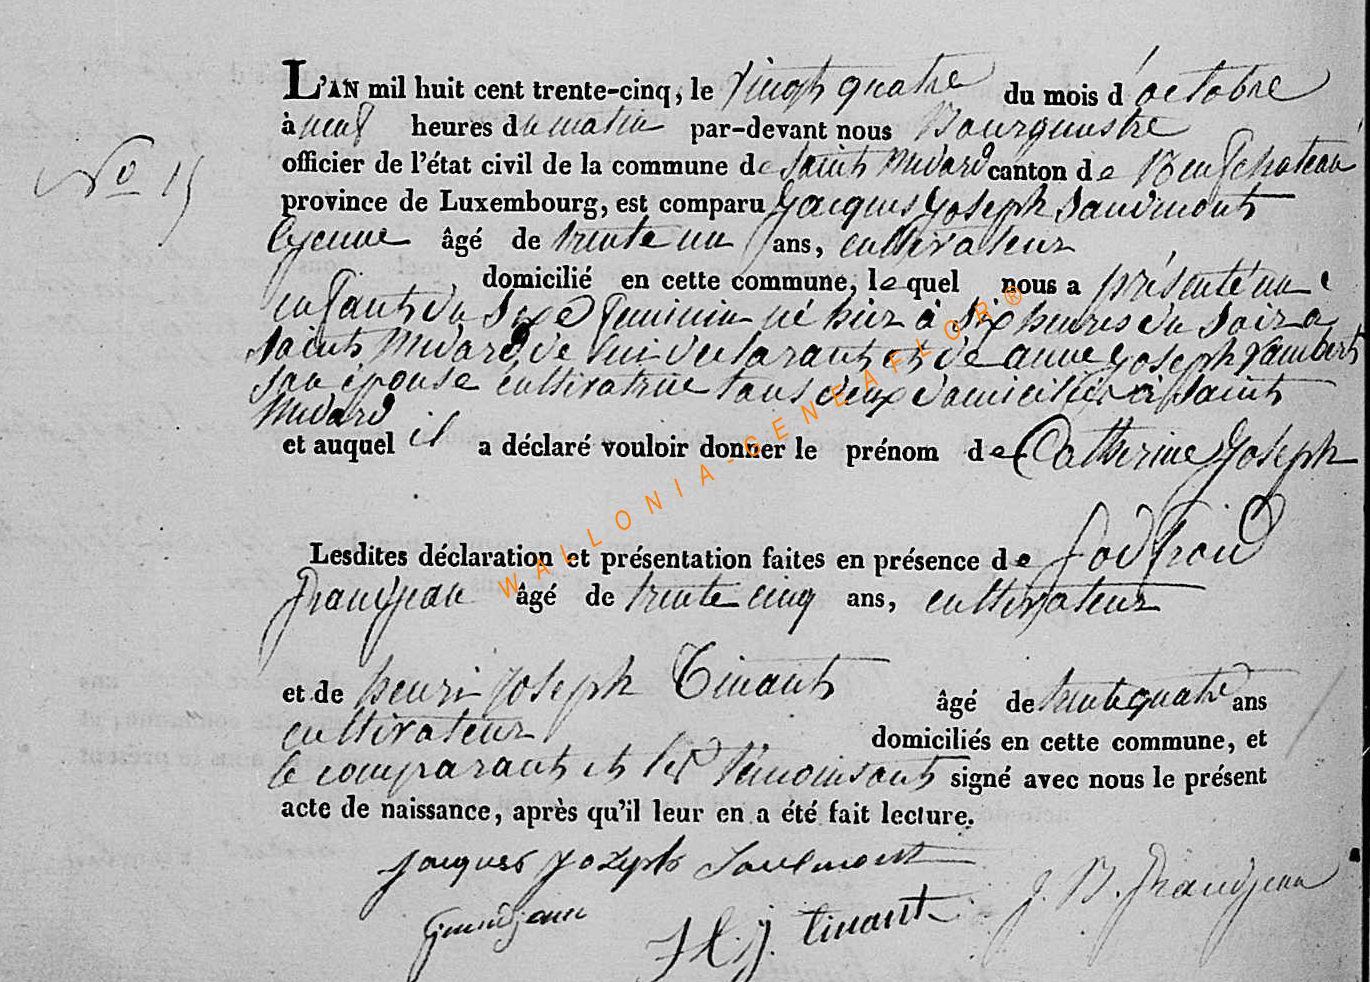 L'AN mil huit cent trente-cinq, le vingt quatre du mois d'octobre
à neuf heures du matin par-devant nous Bourguestre
N° 15
officier de l'état civil de la commune de saint Médard canton de Neufchateau
province de Luxembourg, est comparu Jacques Joseph Saudmont
lejeune âgé de trente un ans, cultivateur
domicilié en cette commune, lequel nous a présenté un
enfant du sexe feminin né hier à six heures du soir a
saint Médard de lui declarant et de anne joseph Lambert
son épouse cultivatrice tous deux domiciliés à saint
Médard
et auquel il a déclaré vouloir donner le prénom de Catherine Joseph
Lesdites déclaration et présentation faites en présence de godfroid
grandjean âgé de trente cinq ans, cultivateur
et de henri joseph Tinant âgé de trente quatre ans
cultivateur domiciliés en cette commune, et
le comparant et les témoins ont signé avec nous le présent
acte de naissance, après qu'il leur en a été fait lecture.
jacques jozeph Saulmont
grandjean H. j. tinant J. B. grandjean
WALLONIA-GENEAFLOR®